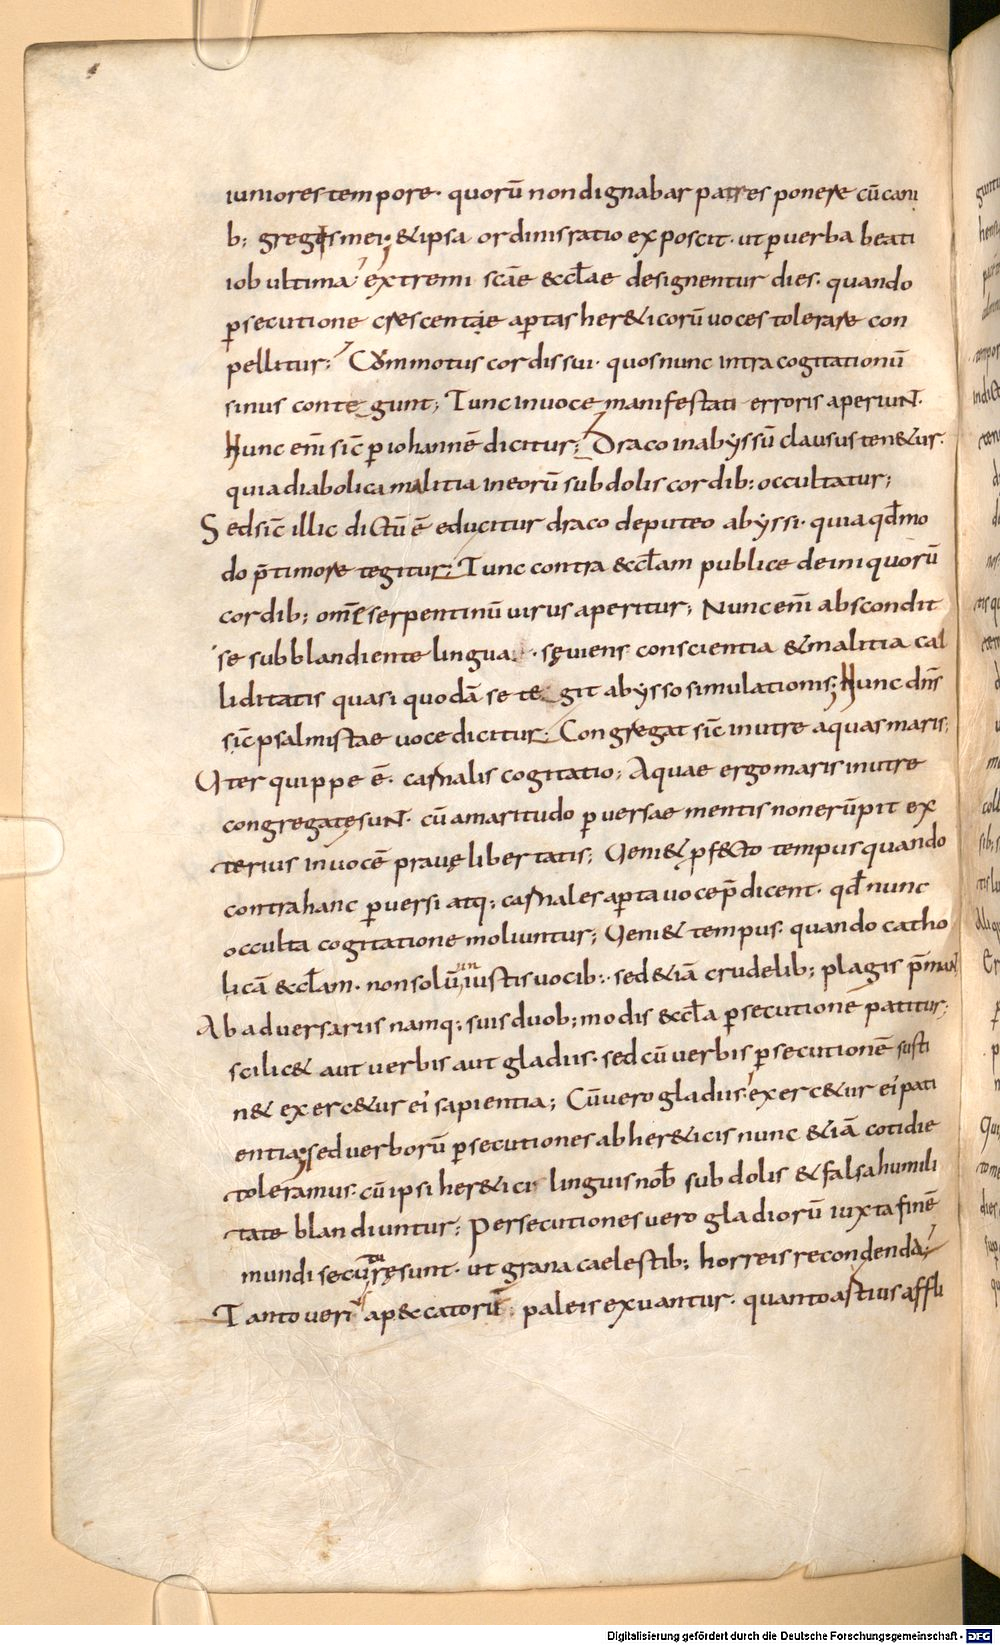 iuniores tempore· quorū non dignabar patres ponere cū cani
b; gregis mei; & ipsa ordinis ratio exposcit· ut ꝑ uerba beati
iob ultima extremi scāe ęccl̄ae designentur dies· quando
ꝑsecutione crescentae aꝑtas her&icorū uoces tolerare con
pellitur; Cōmotus cordis sui· quos nunc intra cogitationū
sinus contegunt; Tunc in uoce manifestati erroris aperiunt·
Hunc em̄ sic̄ ꝑ iohannē dicitur; Draco in abyssū clausus ten&ur·
quia diabolica malitia in eorū subdolis cordib; occultatur;
Sed sic̄ illic dictū ē educitur draco de puteo abyssi· quia qđ mo
do p̄ timore tegitur; Tunc contra &ccl̄am publice de iniquorū
cordib; om̄e serpentinū uirus aperitur; Nunc em̄ abscondit
se sub blandiente lingua· sęuiens conscientia & malitia cal
liditatis quasi quodā se tegit abysso simulationis; Hunc dn̄s
sic̄ psalmistae uoce dicitur; Congregat sic̄ in utre aquas maris;
Uter quippe ē· carnalis cogitatio; Aquae ergo maris in utre
congregate sunt· cū amaritudo ꝑuersae mentis non erūpit ex
terius in uocē prauę libertatis; Ueni& ꝓf&cto tempus quando
contra hanc ꝑuersi atq; carnales aꝑta uoce p̄dicent· qđ nunc
occulta cogitatione moliuntur; Ueni& tempus· quando catho
licā &ccl̄am· non solū iniustis uocib;· sed &iā crudelib; plagis p̄mant
Ab aduersariis namq; suis duob; modis &ccl̄a ꝑsecutionē patitur;
scilic& aut uerbis aut gladiis· sed cū uerbis ꝑsecutionē susti
n& exerc&ur ei sapientia; Cū uero gladiis· exerc&ur ei pati
entia; sed uerborū ꝑsecutiones ab her&icis nunc &iā cotidie
toleramus· cū ipsi her&ici linguis nob̄ subdolis & falsa humili
tate blandiuntur; Persecutiones uero gladiorū iuxta finē
mundi secuturę sunt· ut grana caelestib; horreis recondenda;
Tanto ueri a p&ccatorū paleis exuantur· quanto astius affli
Digitalisierung gefördert durch die Deutsche Forschungsgemeinschaft - DFG